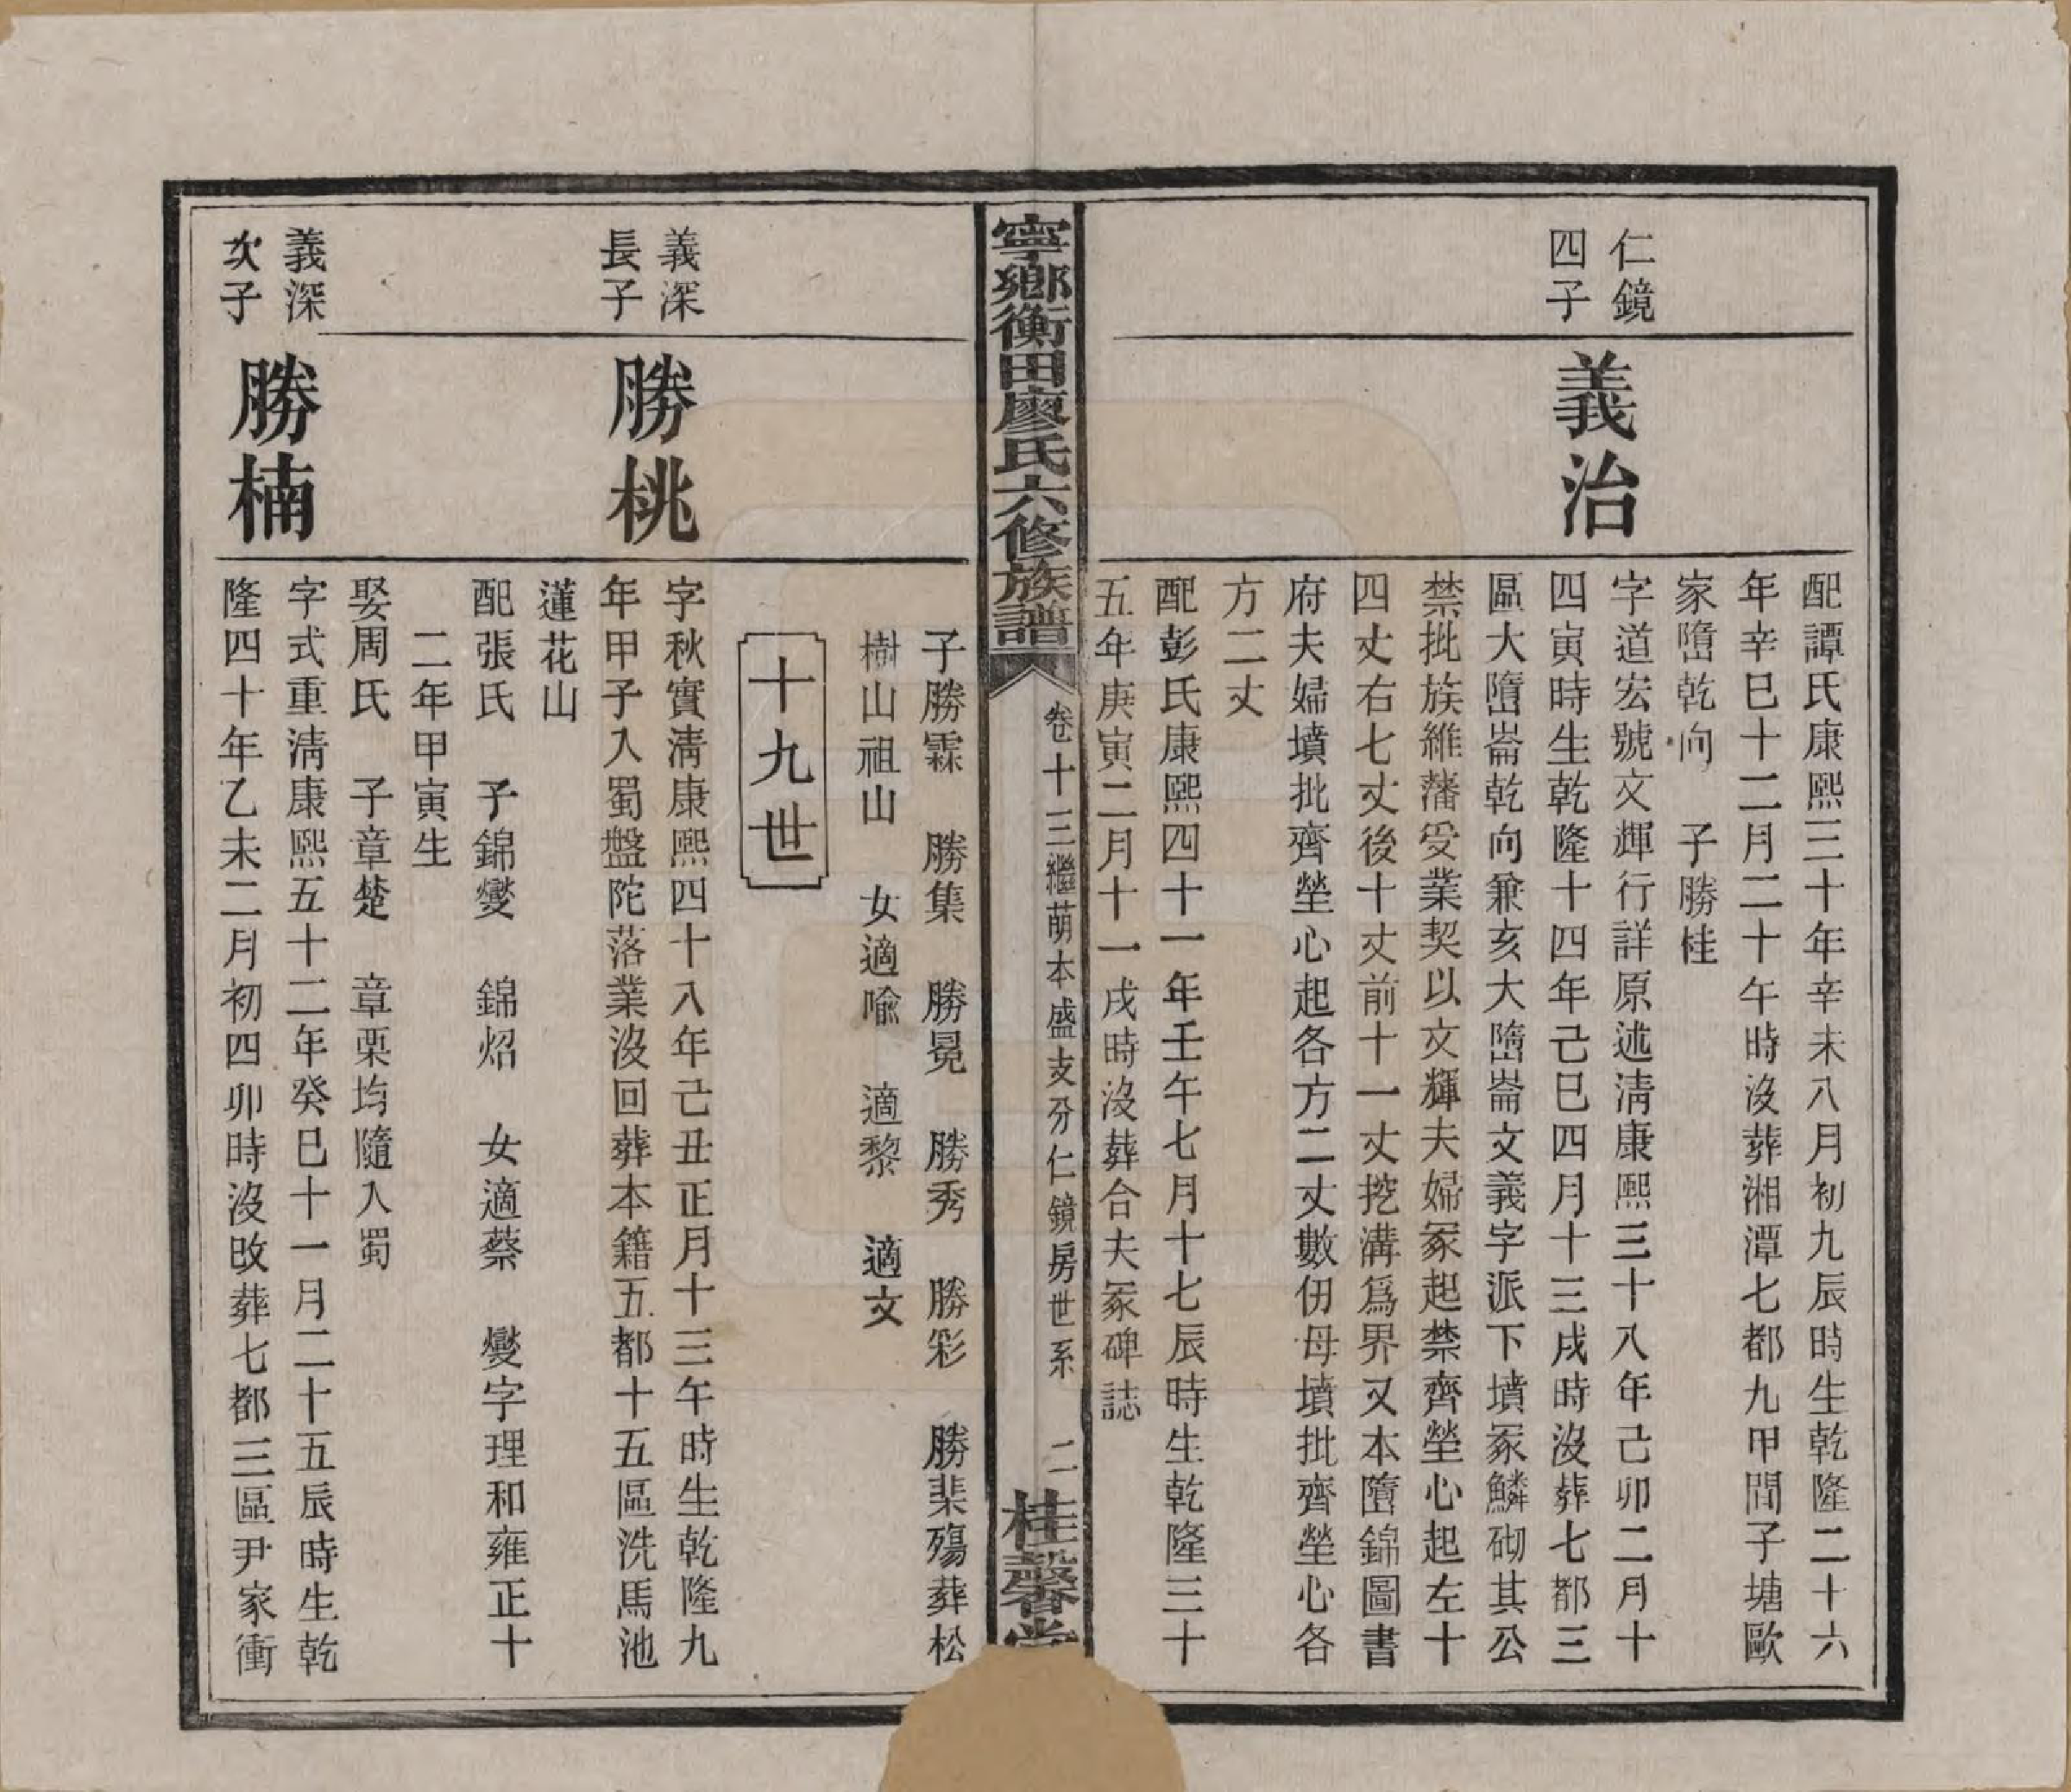 配譚氏康熙三十年辛未八月初九辰時生乾隆二十六
年辛巳十二月二十午時沒葬湘潭七都九甲間子塘歐
家𡺾乾向　子勝桂
仁鏡
四子
義治
字道宏號文輝行詳原述淸康熙三十八年己卯二月十
四寅時生乾隆十四年己巳四月十三戌時沒葬七都三
區大𡺾崙乾向兼亥大𡺾崙文義字派下墳冢鱗砌其公
禁批族維藩受業契以文輝夫婦冢起禁齊塋心起左十
四丈右七丈後十丈前十一丈挖溝爲界又本𡺾錦圖書
府夫婦墳批齊塋心起各方二丈數伢母墳批齊塋心各
方二丈
配彭氏康熙四十一年壬午七月十七辰時生乾隆三十
五年庚寅二月十一戌時沒葬合夫冢碑誌
寧鄉衡田廖氏六修族譜
卷十三繼萌本盛支分仁鏡房世系　二
桂馨堂
子勝霖　勝集　勝冕　勝秀　勝彩　勝棐殤葬松
樹山祖山　女適喩　適黎　適文
十九世
義深
長子
勝桃
字秋實淸康熙四十八年己丑正月十三午時生乾隆九
年甲子入蜀盤陀落業沒回葬本籍五都十五區洗馬池
蓮花山
配張氏　子錦燮　錦炤　女適蔡　燮字理和雍正十
二年甲寅生
娶周氏　子章楚　章栗均隨入蜀
義深
次子
勝楠
字式重淸康熙五十二年癸巳十一月二十五辰時生乾
隆四十年乙未二月初四卯時沒改葬七都三區尹家衝